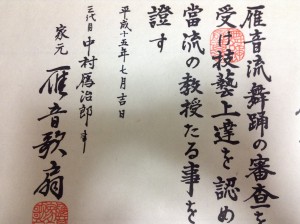 雁音流舞踊の審査を
受け技藝上達を認め
當流の教授たる事を
證す
平成十五年七月吉日
三代目 中村鴈治郎
家元 雁音歌扇